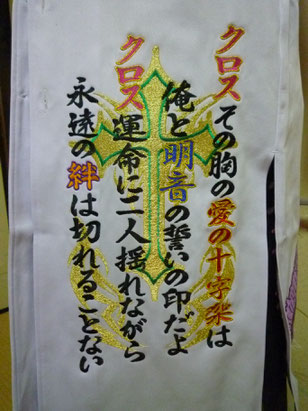 クロスその胸の愛の十字架は
俺と明音の誓いの印だよ
クロス運命に二人揺れながら
永遠の絆は切れることない